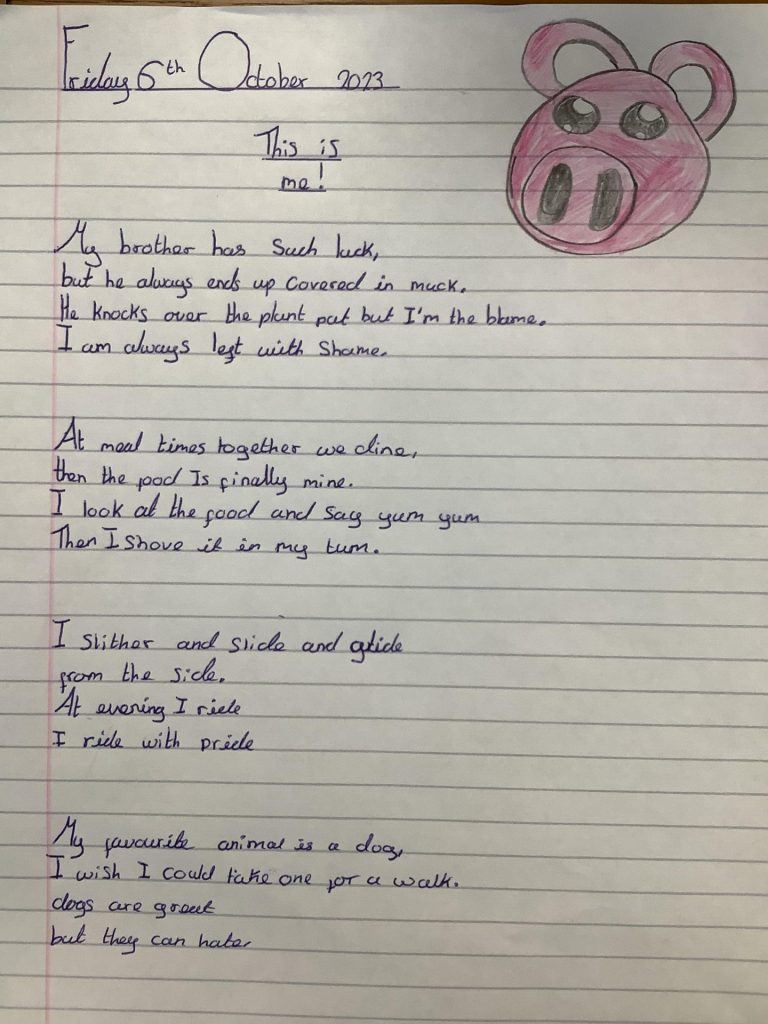 Friday 6th October 2023
This is
me!
My brother has such luck,
but he always ends up covered in muck.
He knocks over the plant pat but I'm the blame.
I am always left with shame.
At meal times together we dine,
then the food Is finally mine.
I look at the food and say yum yum
Then I shove it in my tum.
I slither and slide and glide
from the side.
At evening I ride
I ride with pride
My favourite animal is a dog,
I wish I could take one for a walk.
dogs are great
but they can hate.